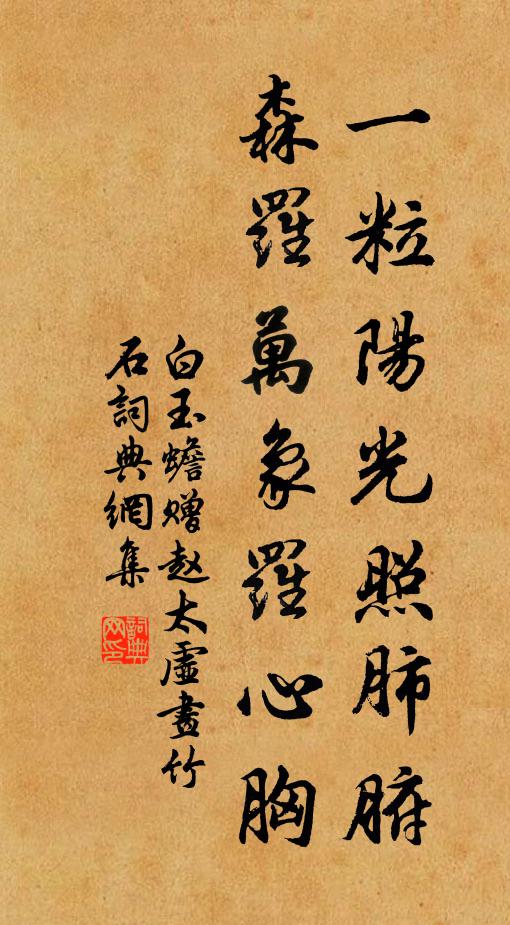 一粒陽光照肺腑
森羅萬象羅心胸
白玉蟾赠赵太虛畫竹
石詞典網集
詞典網印